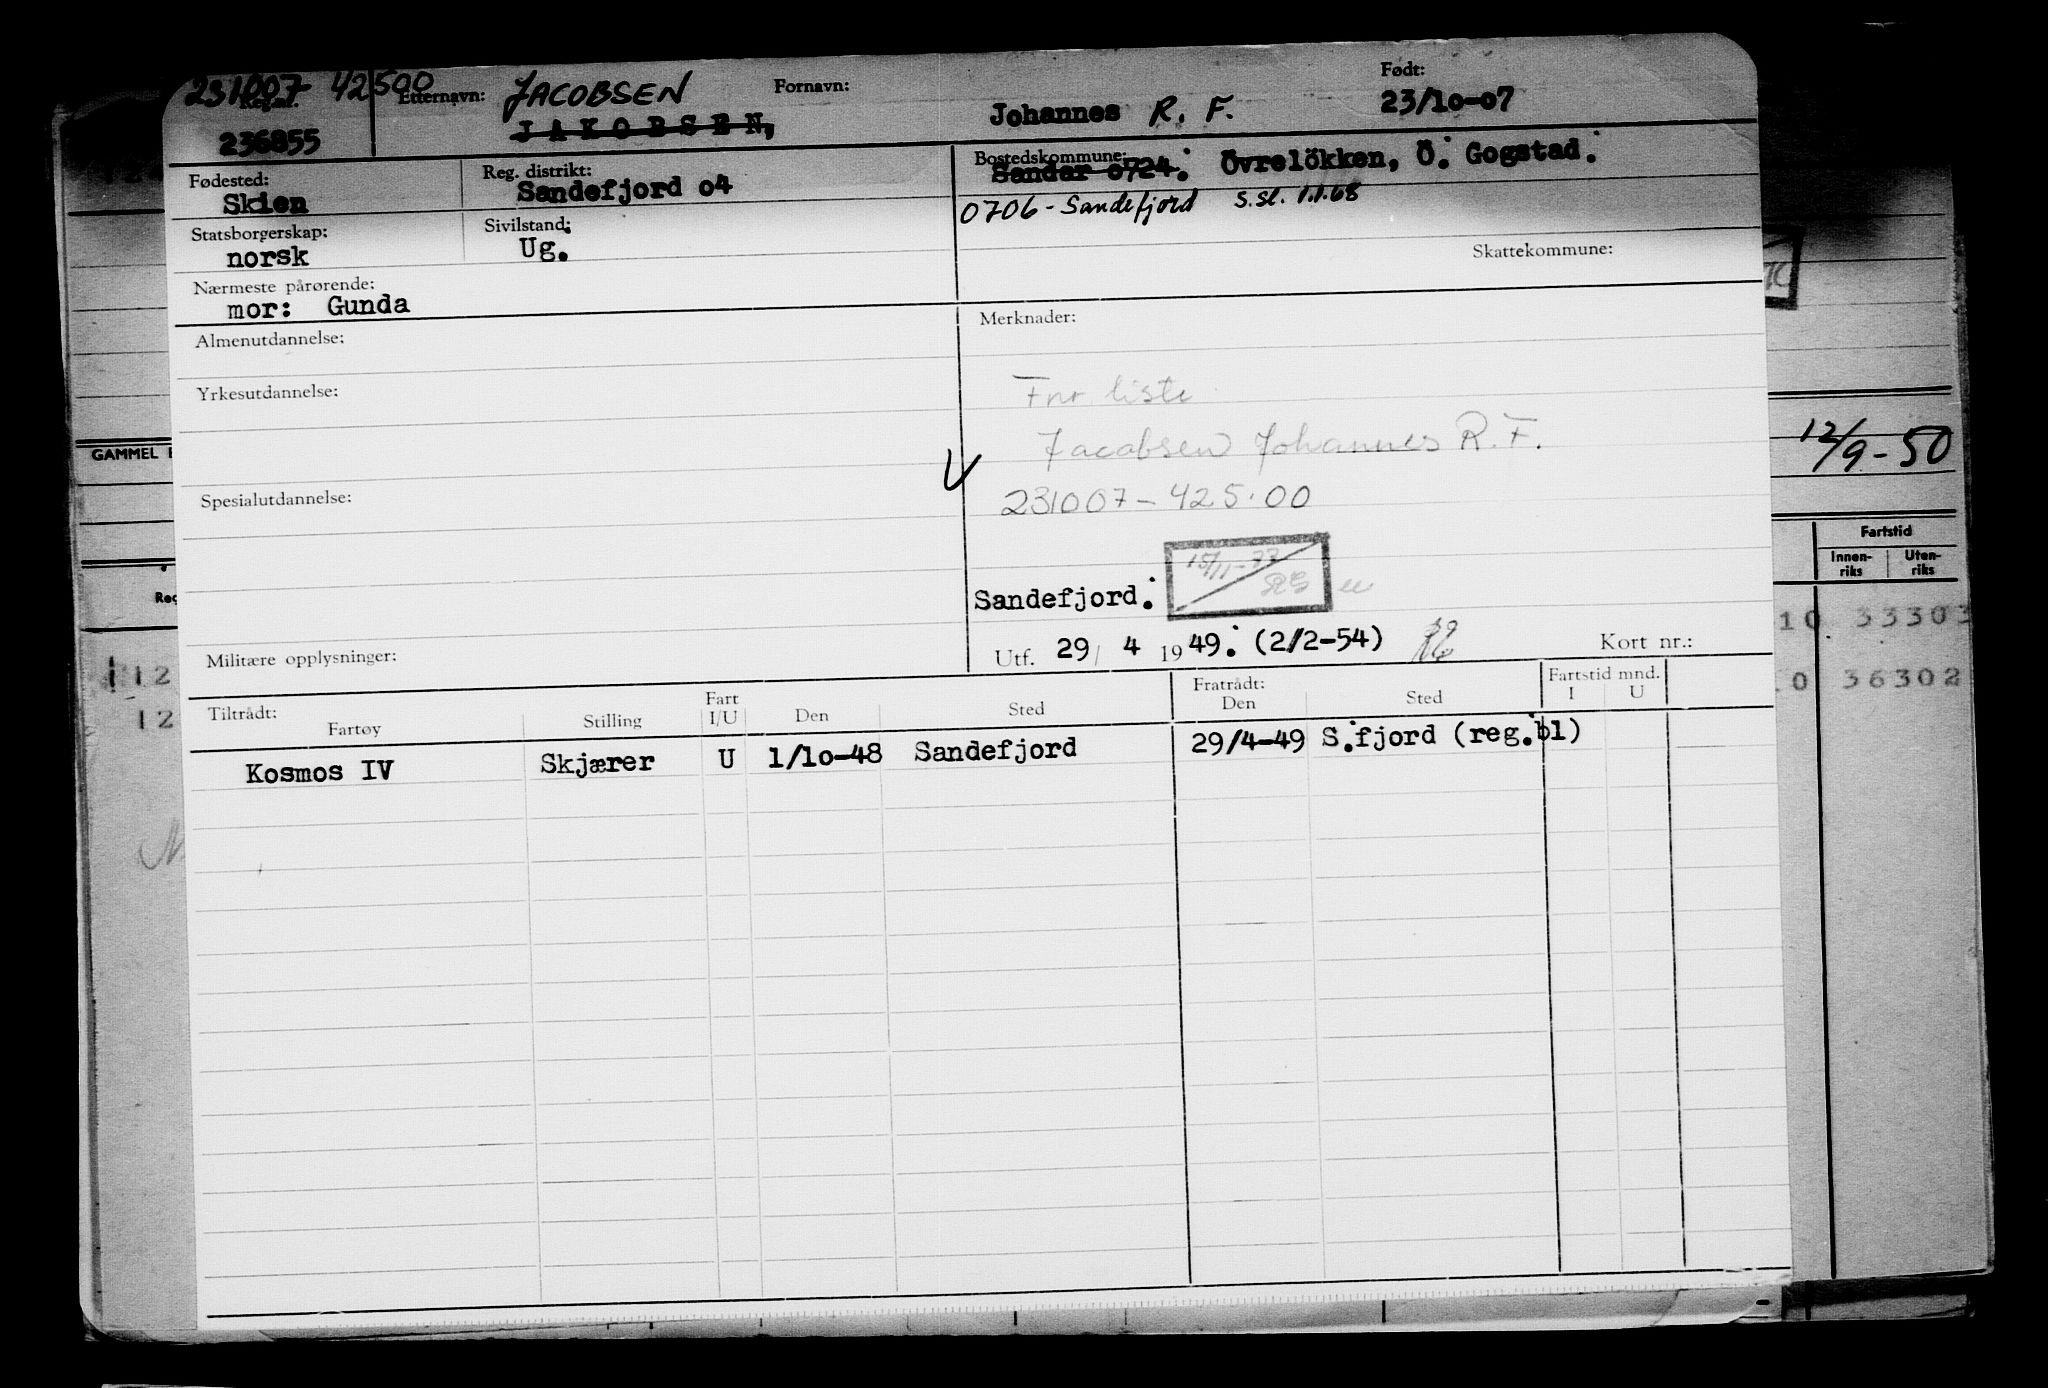 231007 42500 Etternavn: JACOBSEN Fornavn: Født:
Reg.nr. JAKOBSEN, Johannes R. F. 23/10-07
236855
Fødested: Reg. distrikt: Bostedskommune:
Skien Sandefjord o4 Sandar o724. Övrelökken, Ö. Gogstad.
0706 - Sandefjord S.sl. 1.1.68
Statsborgerskap: Sivilstand:
norsk Ug.
Skattekommune:
Nærmeste pårørende:
mor: Gunda
Almenutdannelse: Merknader:
Yrkesutdannelse: Fnr. liste
Jacobsen Johannes R. F.
Spesialutdannelse: 231007-425.00
15/11-77
Sandefjord.
Militære opplysninger: Utf. 29/ 4 1949. (2/2-54) Kort nr.:
Tiltrådt: Fart Fratrådt: Fartstid mnd.
Fartøy Stilling I/U Den Sted Den Sted I U
Kosmos IV Skjærer U 1/1o-48 Sandefjord 29/4-49 S.fjord (reg.bl)
GAMMEL
12/9-50
Fartstid
Innen- Uten-
riks riks
10 33303
36302
12
12